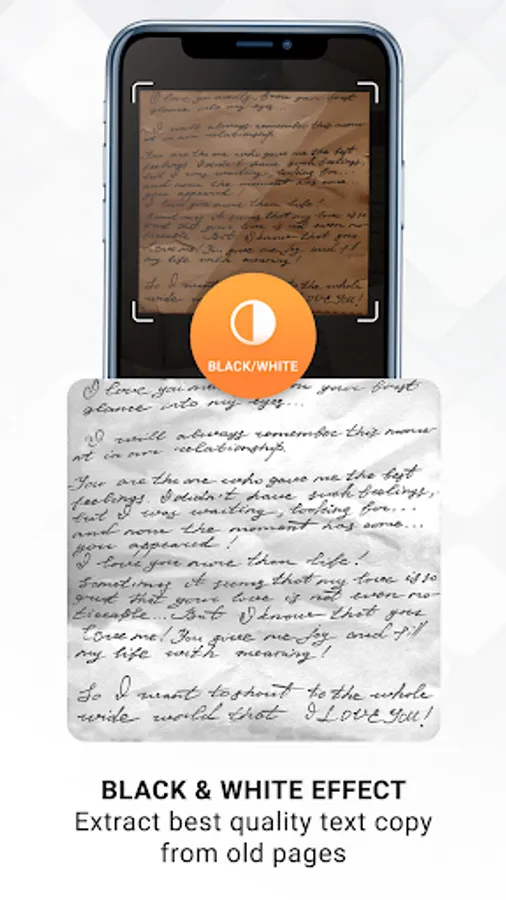 I love you madly, from your first
glance into my eyes...
I will always remember this mome
nt in our relationship.
You are the one who gave me the best
feelings. I didn't have such feelings,
but I was waiting, looking for...
and now the moment has come...
you appeared!
I love you more than life!
Sometimes it seems that my love is so
great that your love is not even no
ticeable... But I know that you
Love me! You give me joy and fill
my life with meaning!
So I want
wide
to the whole
I LOVE YOU!
BLACK/WHITE
I love you
your first
glance into my eyes...
I will always remember this mome
nt in our relationship.
You are the one who gave me the best
feelings. I didn't have such feelings,
but I was waiting, looking for...
and now the moment has come...
you appeared!
I love you more than life!
Sometimes it seems that my love is so
great that your love is not even no
ticeable... But I know that you
Love me! You give me joy and fill
my life with meaning!
So I want to shout to the whole
wide world that I LOVE YOU!
BLACK & WHITE EFFECT
Extract best quality text copy
from old pages